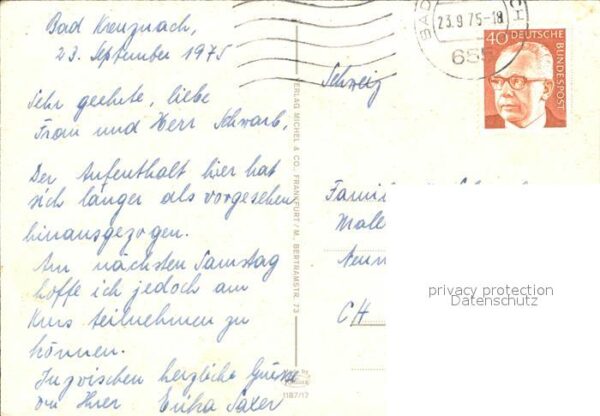 Bad Kreuznach,
23. September 1975
Sehr geehrte, liebe
Frau und Herr Schwarb,
Der Aufenthalt hier hat
sich länger als vorgesehen
hinausgezogen.
Am nächsten Samstag
hoffe ich jedoch am
Kurs teilnehmen zu
können.
Inzwischen herzliche Grüsse
von Ihrer Erika Saxer
1187/17
VERLAG MICHEL & CO., FRANKFURT/M. BERTRAMSTR. 73
BAD
23.9.75-18
655
40 DEUTSCHE
BUNDESPOST
Schweiz
Famil
CH
privacy protection
Datenschutz